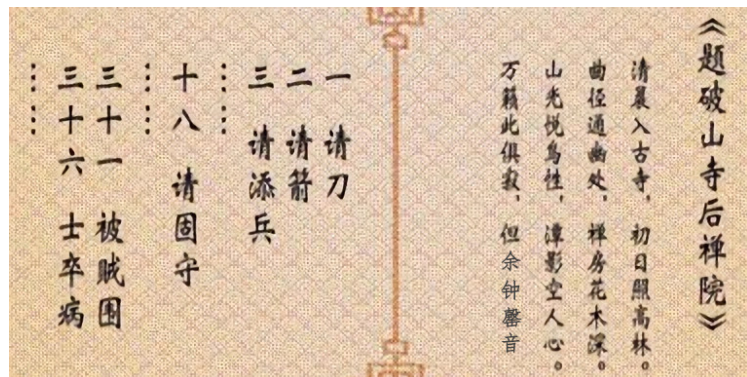 《题破山寺后禅院》
清晨入古寺，初日照高林。
曲径通幽处，禅房花木深。
山光悦鸟性，潭影空人心。
万籁此俱寂，但余钟馨音
一 请刀
二 请箭
三 请添兵
……
十八 请固守
……
三十一 被贼围
三十六 士卒病
……